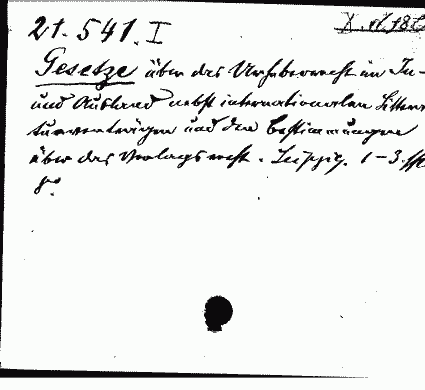 21.541.I
Gesetze über das Urheberrecht im In-
und Ausland nebst internationalen Littera-
turverträgen und den Bestimmungen
über das Verlagsrecht. Leipzig. 1-3.
8°.